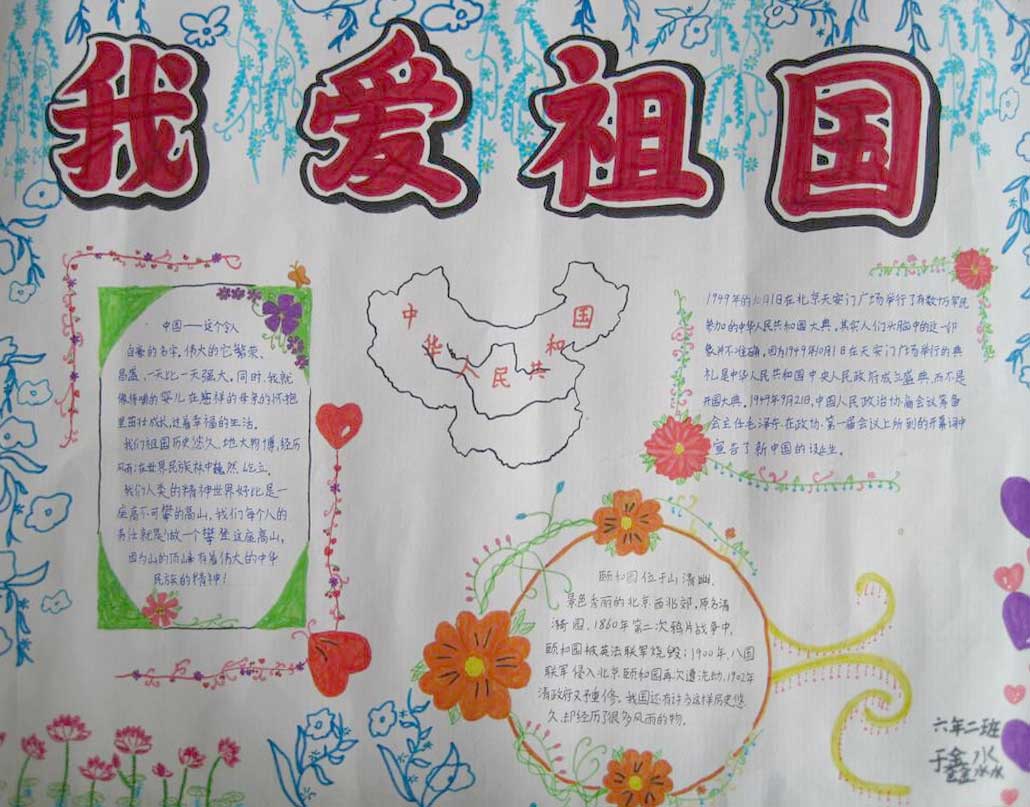 我爱祖国
中国——这个令人
自豪的名字,伟大的它繁荣、
昌盛、一天比一天强大。同时,我就
像待哺的婴儿在慈祥的母亲的怀抱
里茁壮成长,过着幸福的生活。
我们祖国历史悠久、地大物博,经历
风雨在世界民族林中巍然屹立。
我们人类的精神世界好比是一
座高不可攀的高山,我们每个人的
责任就是做一个攀登这座高山,
因为山的顶峰有着伟大的中华
民族的精神!
中华人民共和国
1949年的10月1日在北京天安门广场举行了有数十万军民
参加的中华人民共和国大典。其实人们头脑中的这一印
象并不准确。因为1949年10月1日在天安门广场举行的典
礼是中华人民共和国中央人民政府成立盛典,而不是
开国大典。1949年9月21日,中国人民政治协商会议筹备
会主任毛泽东在政协第一届会议上所致的开幕词中
宣告了新中国的诞生。
颐和园位于山清幽、
景色秀丽的北京西北郊,原名清
漪园,1860年第二次鸦片战争中,
颐和园被英法联军烧毁;1900年,八国
联军侵入北京颐和园再次遭洗劫,1902年
清政府又予重修。我国还有许多这样历史悠
久却经历了很多风雨的物。
六年二班
于鑫淼